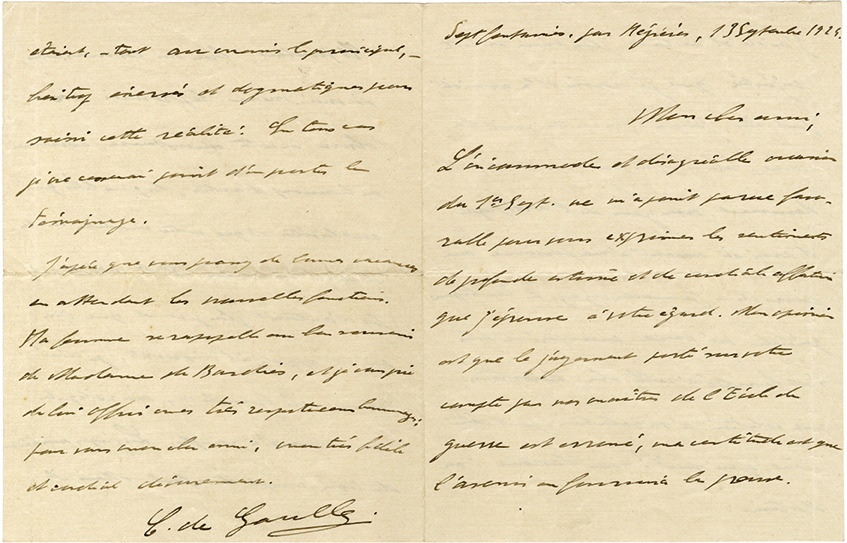 Septfontaines, par Mézières, 13 Septembre 1924.
Mon cher ami,
L'incommode et désagréable occasion
du 1er Sept. ne m'a point parue favo-
rable pour vous exprimer les sentiments
de profonde estime et de cordiale affection
que j'éprouve à votre égard. Mon opinion
est que le jugement porté sur votre
compte par nos maîtres de l'Ecole de
guerre est erroné, ma certitude est que
l'avenir en fournira la preuve.
étaient, – tout au moins le principal, –
trop énervés et dogmatiques pour
saisir cette réalité. En tous cas
je ne cesserai point d'en porter le
témoignage.
J'espère que vous de bonnes vacances
en attendant les nouvelles fonctions.
Ma femme se rappelle au bon souvenir
de Madame de Bardies, et je vous prie
de lui offrir mes très respectueux hommages;
pour vous mon cher ami, mon très fidèle
et cordial dévouement.
C. de Gaulle.